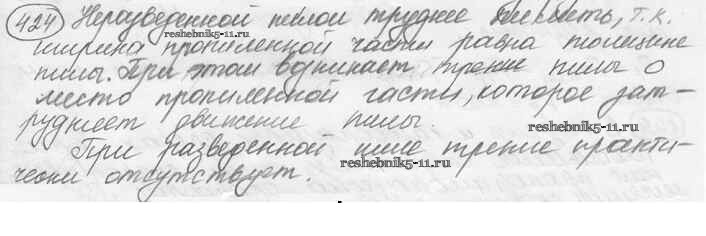 424 Неразведенной пилой труднее пилить, т.к.
reshebnik5-11.ru
ширина пропиленной части равна толщине
пилы. При этом возникает трение пилы о
reshebnik5-11.ru
место пропиленной части, которое зат-
рудняет движение пилы.
reshebnik5-11.ru
При разведенной пиле трение практи-
reshebnik5-11.ru
чески отсутствует.